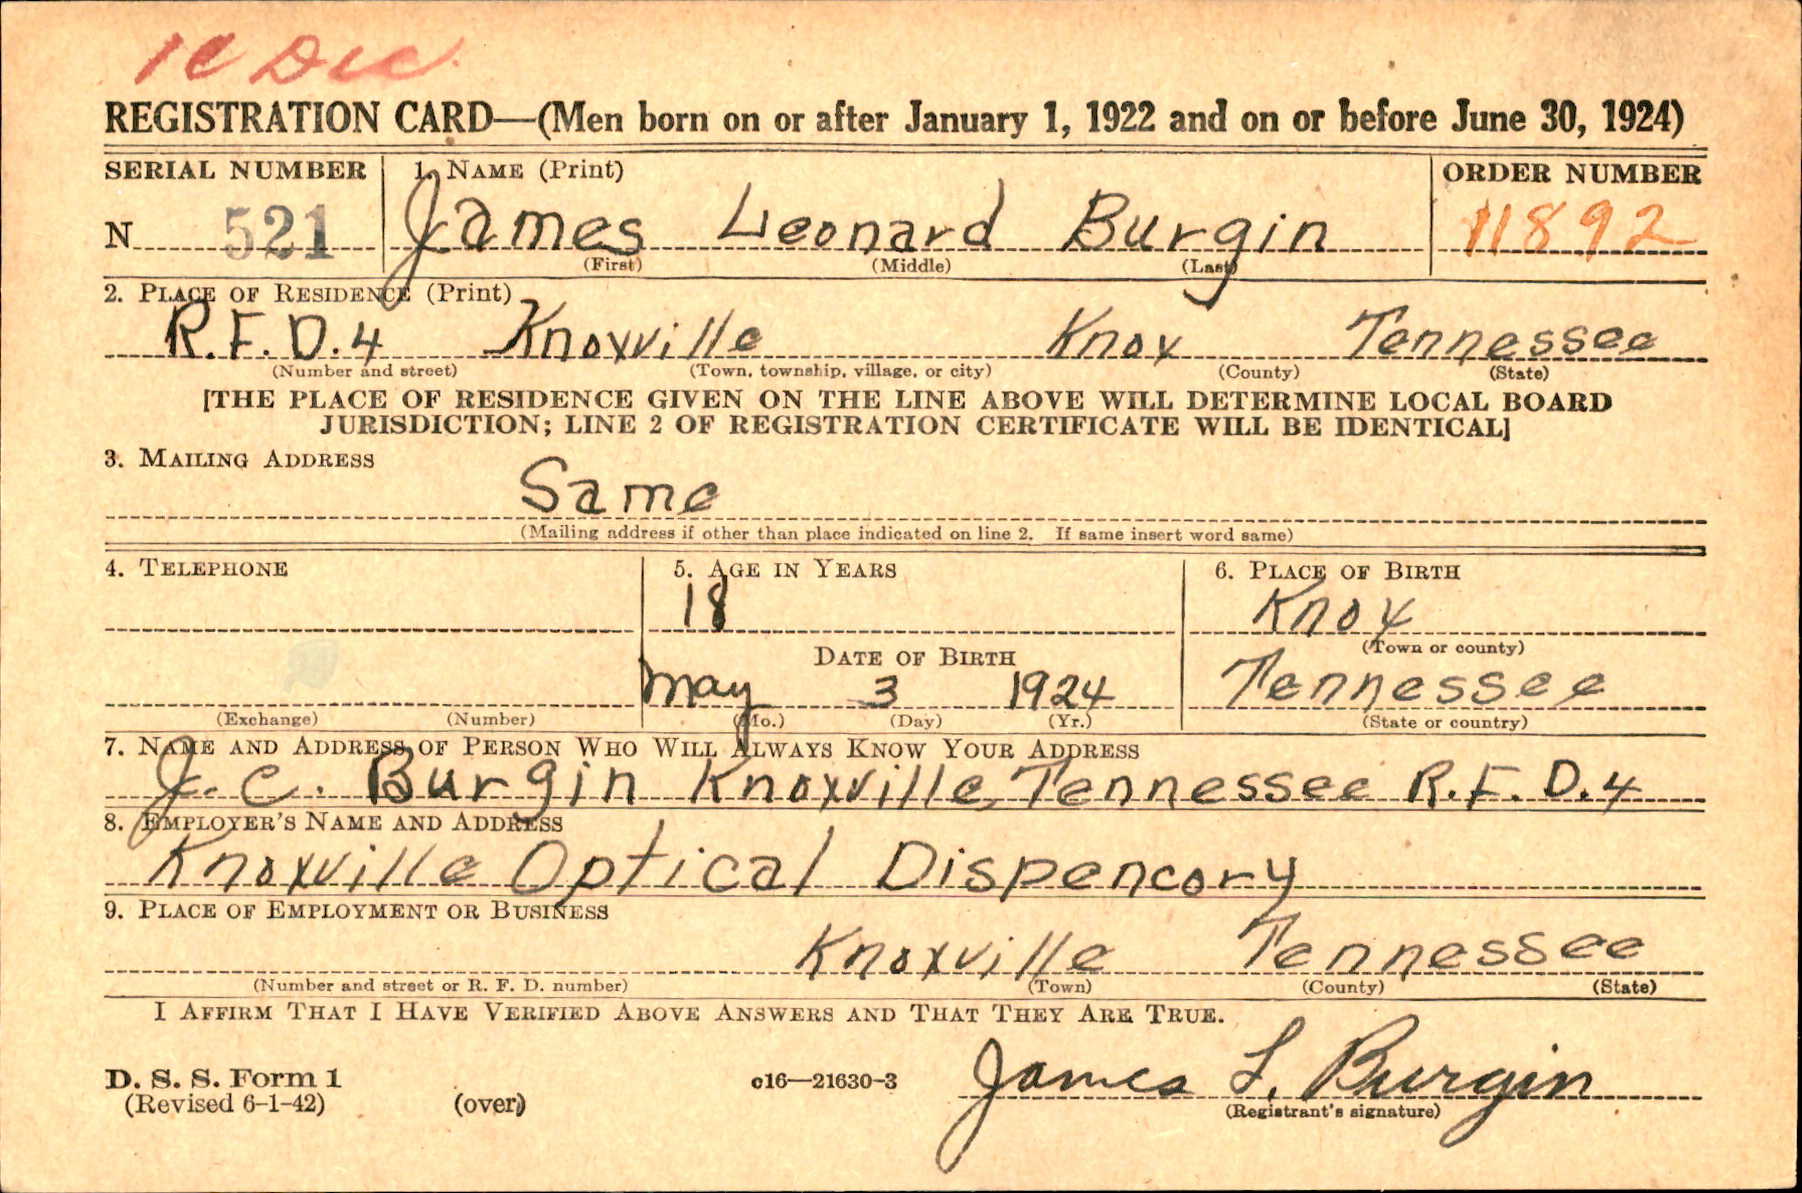 1C Dec
REGISTRATION CARD—(Men born on or after January 1, 1922 and on or before June 30, 1924)
SERIAL NUMBER 1. NAME (Print) ORDER NUMBER
N 521 James Leonard Burgin 11892
(First) (Middle) (Last)
2. PLACE OF RESIDENCE (Print)
R.F.D.4 Knoxville Knox Tennessee
(Number and street) (Town, township, village, or city) (County) (State)
[THE PLACE OF RESIDENCE GIVEN ON THE LINE ABOVE WILL DETERMINE LOCAL BOARD
JURISDICTION; LINE 2 OF REGISTRATION CERTIFICATE WILL BE IDENTICAL]
3. MAILING ADDRESS
Same
(Mailing address if other than place indicated on line 2. If same insert word same)
4. TELEPHONE 5. AGE IN YEARS 6. PLACE OF BIRTH
18 Knox
(Town or county)
DATE OF BIRTH
May 3 1924 Tennessee
(Exchange) (Number) (Mo.) (Day) (Yr.) (State or country)
7. NAME AND ADDRESS OF PERSON WHO WILL ALWAYS KNOW YOUR ADDRESS
J. C. Burgin Knoxville, Tennessee R.F.D.4
8. EMPLOYER'S NAME AND ADDRESS
Knoxville Optical Dispencory
9. PLACE OF EMPLOYMENT OR BUSINESS
Knoxville Tennessee
(Number and street or R. F. D. number) (Town) (County) (State)
I AFFIRM THAT I HAVE VERIFIED ABOVE ANSWERS AND THAT THEY ARE TRUE.
D. S. S. Form 1
(Revised 6-1-42) (over) c16—21630-3 James L. Burgin
(Registrant's signature)